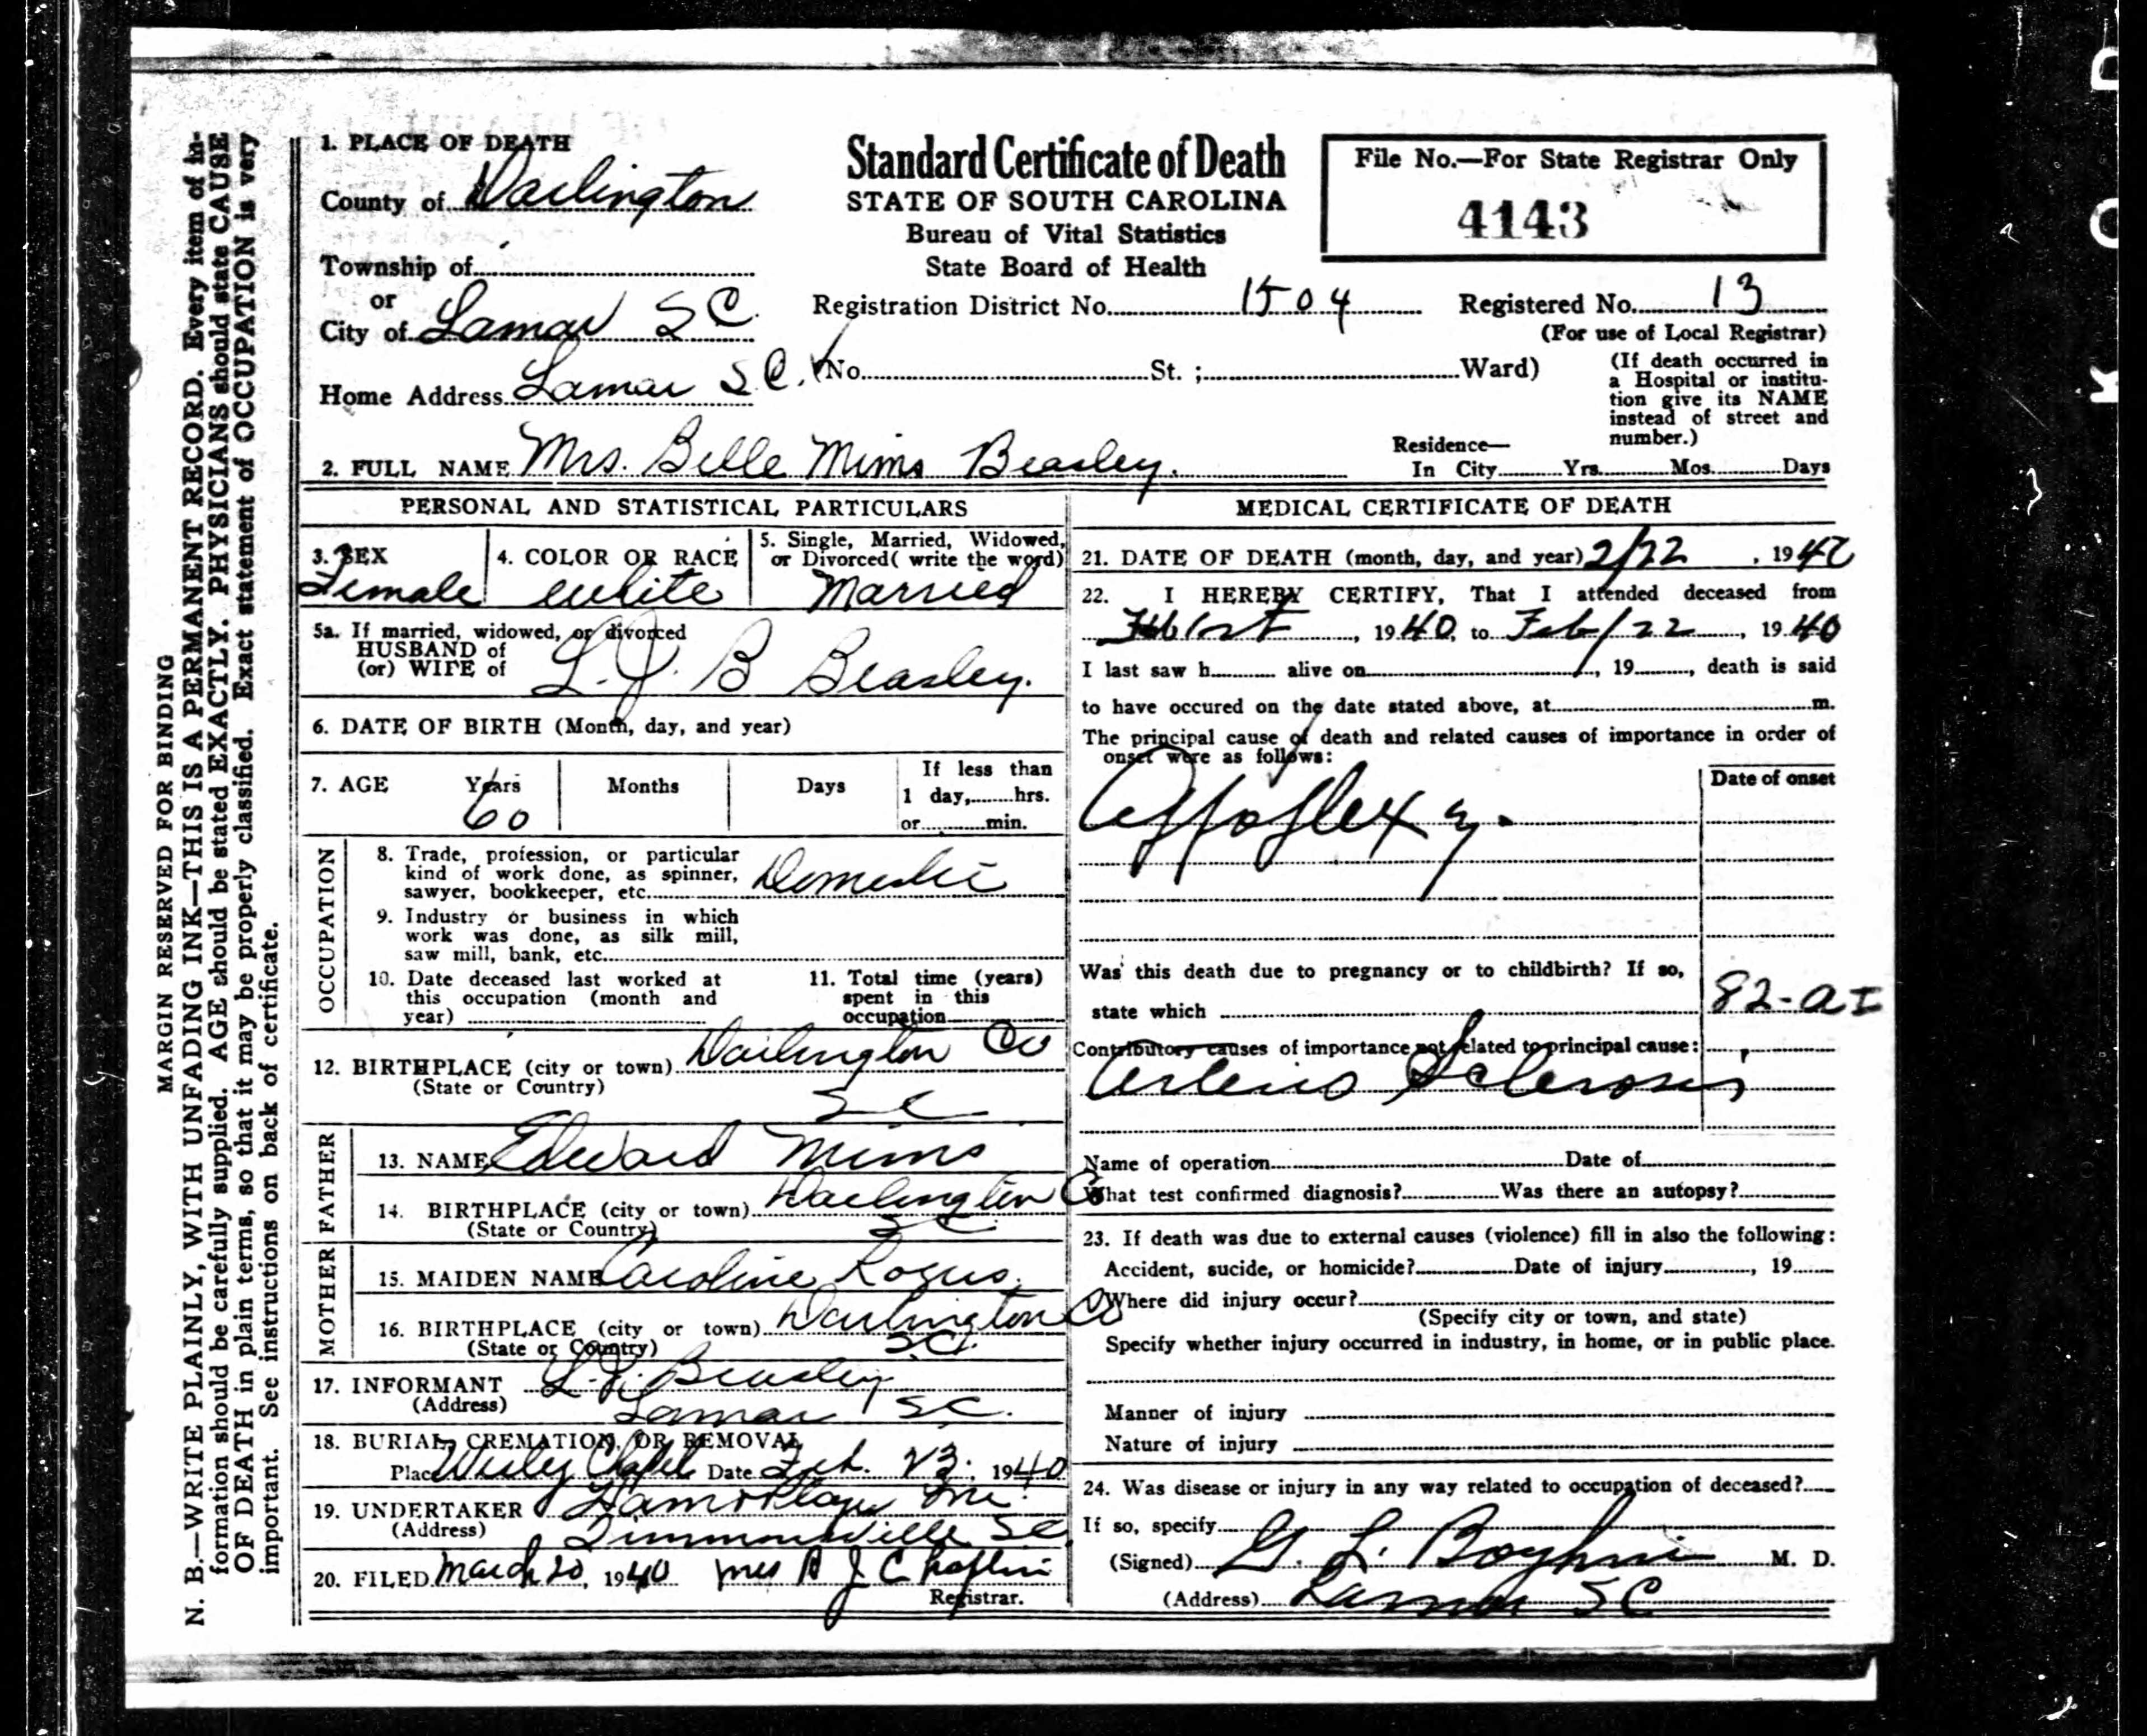 1. PLACE OF DEATH
County of Darlington
Township of
or
City of Lamar SC.
Home Address Lamar S.C.
Standard Certificate of Death
STATE OF SOUTH CAROLINA
Bureau of Vital Statistics
State Board of Health
File No.—For State Registrar Only
4143
Registration District No. 1504 Registered No. 13
(For use of Local Registrar)
(No. St. ; Ward)
(If death occurred in
a Hospital or institu-
tion give its NAME
instead of street and
number.)
2. FULL NAME Mrs. Belle Mims Beasley.
Residence—
In City Yrs. Mos. Days
PERSONAL AND STATISTICAL PARTICULARS
3. SEX
Female
4. COLOR OR RACE
white
5. Single, Married, Widowed,
or Divorced( write the word)
Married
5a. If married, widowed, or divorced
HUSBAND of
(or) WIFE of
L. J. B Beasley.
6. DATE OF BIRTH (Month, day, and year)
7. AGE Years Months Days
60
If less than
1 day, hrs.
or min.
OCCUPATION
8. Trade, profession, or particular
kind of work done, as spinner,
sawyer, bookkeeper, etc. Domestic
9. Industry or business in which
work was done, as silk mill,
saw mill, bank, etc.
10. Date deceased last worked at
this occupation (month and
year)
11. Total time (years)
spent in this
occupation
12. BIRTHPLACE (city or town) Darlington Co
(State or Country)
SC
FATHER
13. NAME Edward Mims
14. BIRTHPLACE (city or town) Darlington Co
(State or Country) SC
MOTHER
15. MAIDEN NAME Caroline
16. BIRTHPLACE (city or town) Darlington Co
(State or Country) S.C.
17. INFORMANT L. J. Beasley
(Address) Lamar SC.
18. BURIAL, CREMATION, OR REMOVAL
Place Wesley Chapel Date Feb. 23, 1940
19. UNDERTAKER Inc.
(Address) Timmonsville SC
20. FILED March 20, 1940 Mrs J Chaplin
Registrar.
MEDICAL CERTIFICATE OF DEATH
21. DATE OF DEATH (month, day, and year) 2/22, 1940
22. I HEREBY CERTIFY, That I attended deceased from
Feb 1st, 1940, to Feb/22, 1940
I last saw h alive on , 19 , death is said
to have occured on the date stated above, at m.
The principal cause of death and related causes of importance in order of
onset were as follows:
Date of onset
Appoplexy.
Was this death due to pregnancy or to childbirth? If so,
state which
82-a I
Contributory causes of importance not related to principal cause:
Arterio Sclerosis
Name of operation Date of
What test confirmed diagnosis? Was there an autopsy?
23. If death was due to external causes (violence) fill in also the following:
Accident, sucide, or homicide? Date of injury , 19
Where did injury occur?
(Specify city or town, and state)
Specify whether injury occurred in industry, in home, or in public place.
Manner of injury
Nature of injury
24. Was disease or injury in any way related to occupation of deceased?
If so, specify
(Signed) G. L. M. D.
(Address) Lamar SC
MARGIN RESERVED FOR BINDING
N. B.—WRITE PLAINLY, WITH UNFADING INK—THIS IS A PERMANENT RECORD. Every item of in-
formation should be carefully supplied. AGE should be stated EXACTLY. PHYSICIANS should state CAUSE
OF DEATH in plain terms, so that it may be properly classified. Exact statement of OCCUPATION is very
important. See instructions on back of certificate.